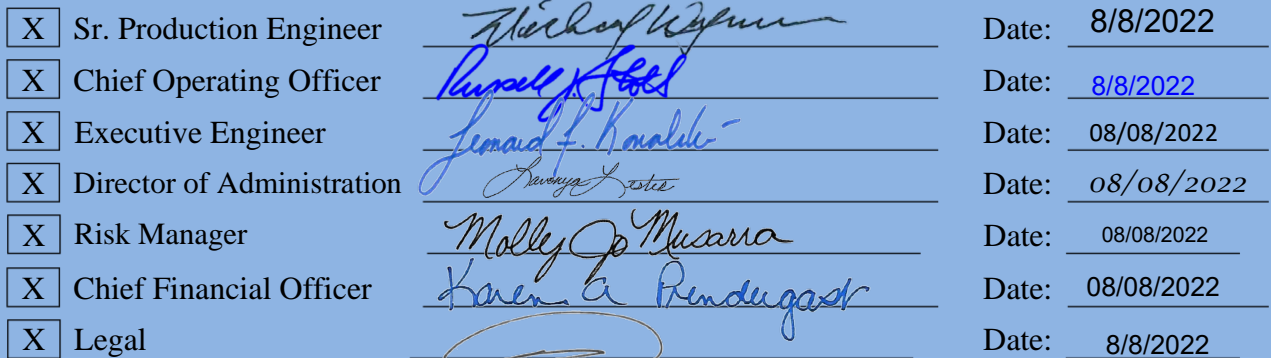 X Sr. Production Engineer Michael Date: 8/8/2022
X Chief Operating Officer Russell J. Date: 8/8/2022
X Executive Engineer Leonard F. Kowalski Date: 08/08/2022
X Director of Administration Lavonya Lester Date: 08/08/2022
X Risk Manager Molly Jo Musarra Date: 08/08/2022
X Chief Financial Officer Karen A Prendergast Date: 08/08/2022
X Legal Date: 8/8/2022